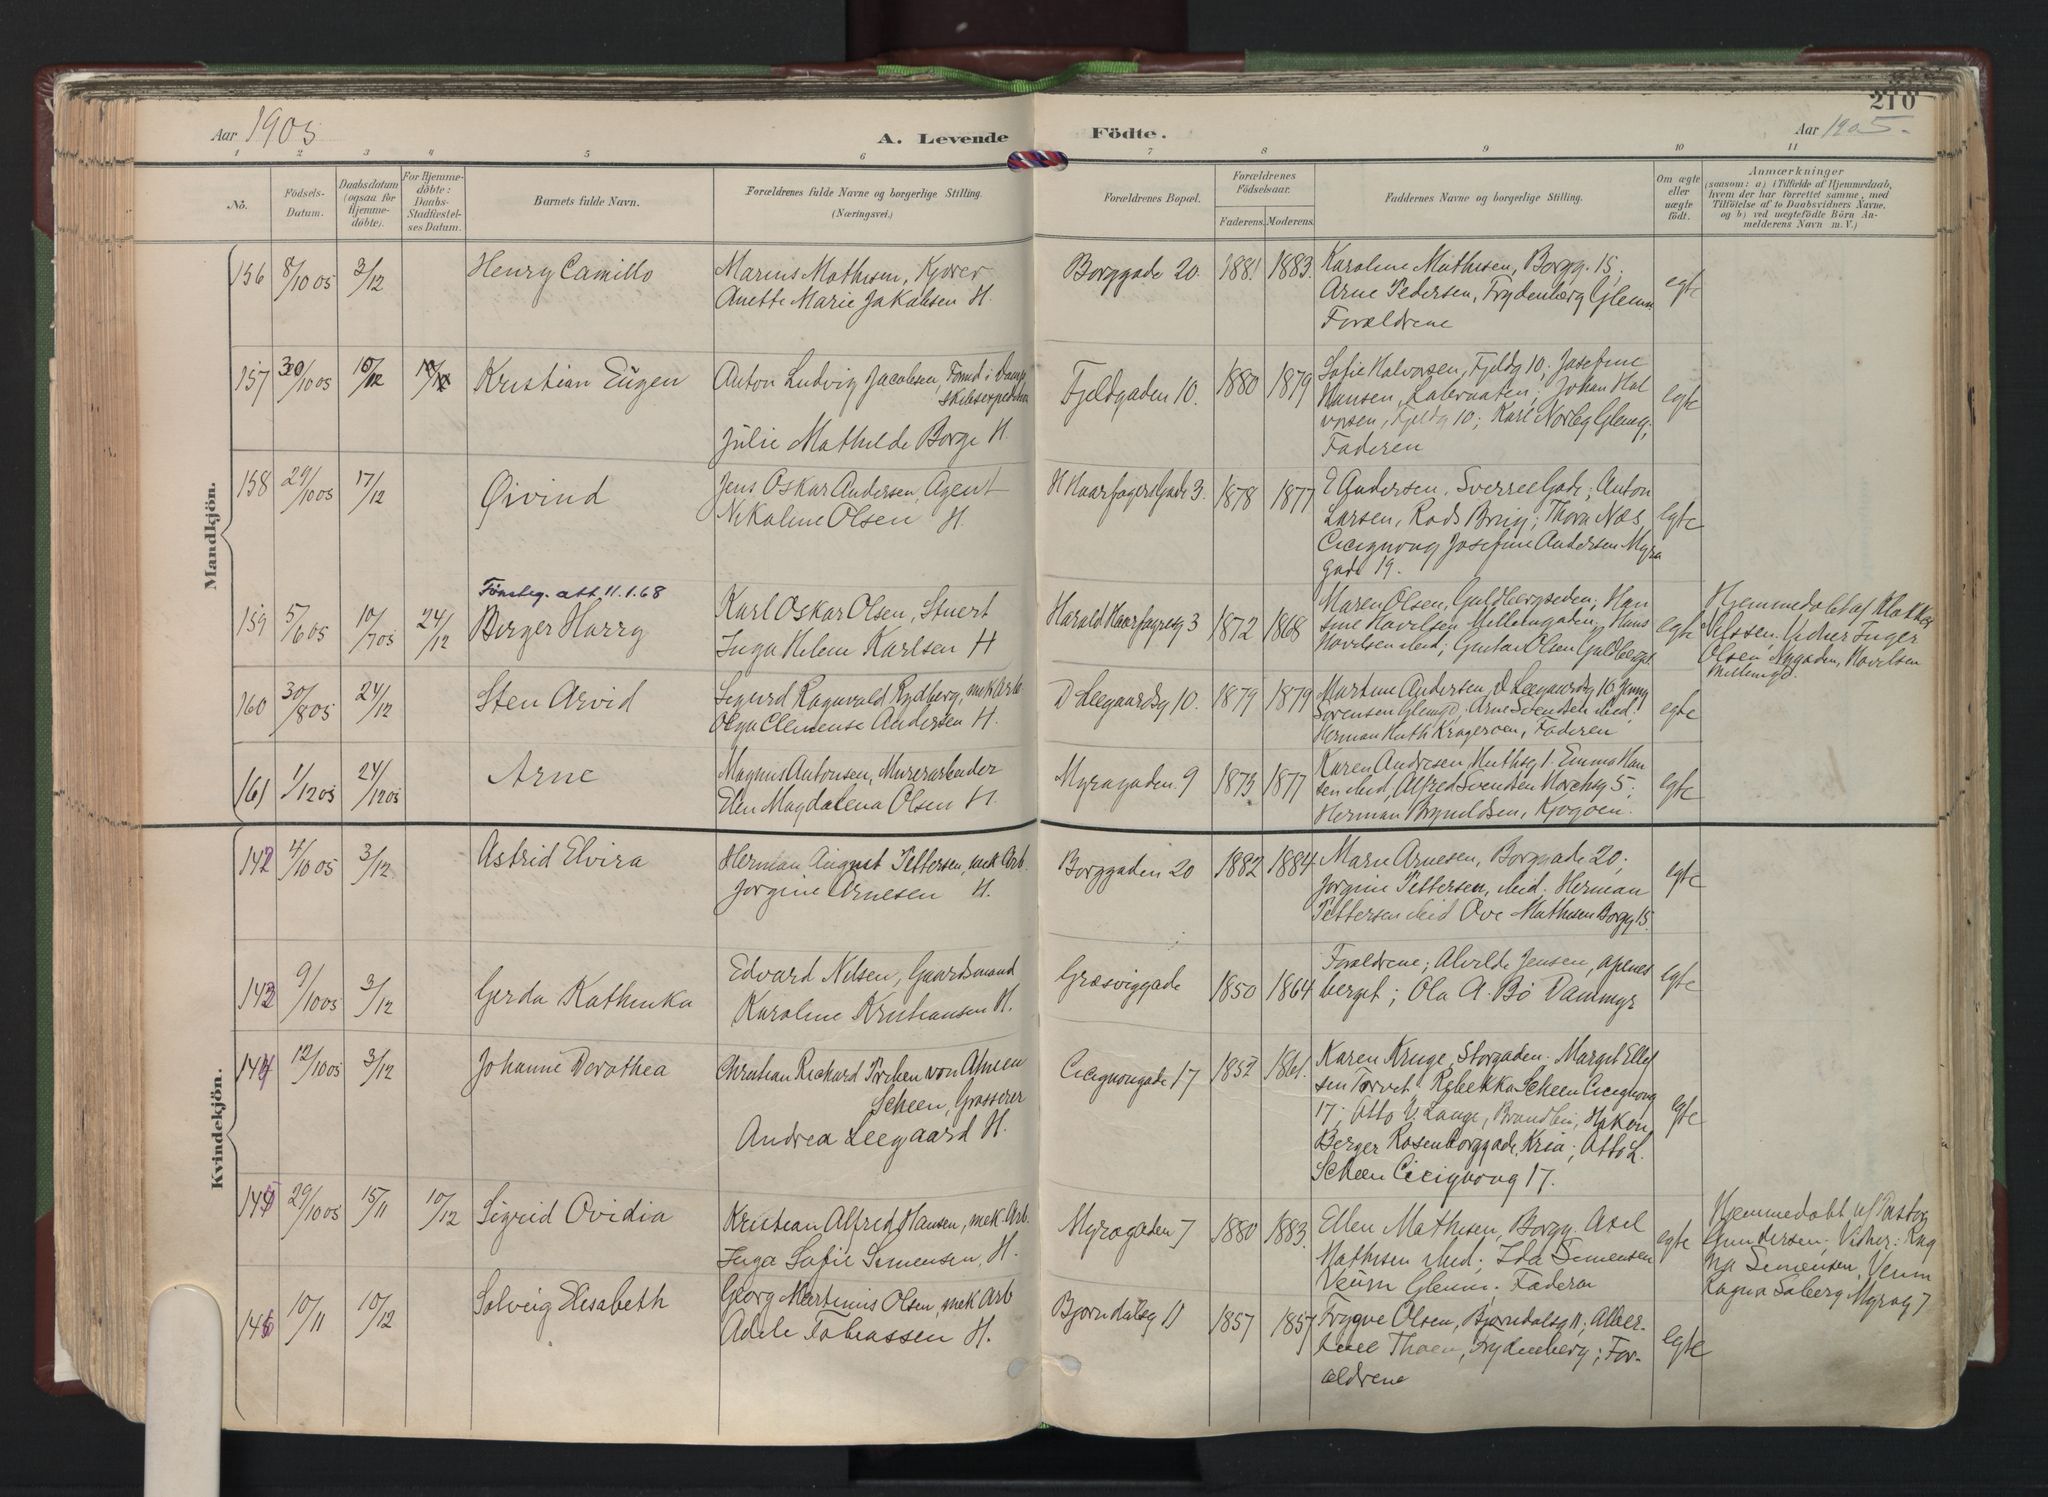 210
Aar 1905
A. Levende Födte.
Aar 1905.
1 2 3 4 5 6 7 8 9 10 11
No.
Födsels-Datum.
Daabsdatum (ogsaa for Hjemmedöbte).
For Hjemmedöbte: Daabs-Stadfæstelses Datum.
Barnets fulde Navn.
Forældrenes fulde Navne og borgerlige Stilling.
(Næringsvei.)
Forældrenes Bopæl.
Forældrenes Födselsaar.
Faderens. Moderens.
Faddernes Navne og borgerlige Stilling.
Om ægte eller uægte födt.
Anmærkninger
(saasom: a) i Tilfælde af Hjemmedaab,
hvem der har forrettet samme, med
Tilföielse af to Daabsvidners Navne,
og b) ved uægtefödte Börn An-
melderens Navn m. V.)
Mandkjön.
156 8/10 05 3/12 Henry Camillo
Marius Mathisen, Kjører
Anette Marie Jakobsen H.
Borggade 20. 1881 1883.
Karoline Mathisen, Borgg. 15;
Arne Pedersen, Frydenberg Glemm
Forældrene
egte
157 30/10 05 10/12 10/12 Kristian Eugen
Anton Ludvig Jacobsen, Fomd i Damp
skibsexpedition
Julie Mathilde Borge H.
Fjeldgaden 10. 1880 1879
Sofie Halvorsen, Fjeldg 10; Josefine
Hansen, Labrvaaten; Johan Hal
vorsen, Fjeldg 10; Karl Norbeg Glemg;
Faderen
egte
158 29/10 05 17/12 Øivind
Jens Oskar Andersen, Agent
Nikoline Olsen H.
H Haarfagers Gade 3. 1878 1877
E Andersen, Sverres Gade; Anton
Larsen, Rods Brug; Thora Næs
Cicignong Josefine Andersen Myra
gade 19.
egte
Fønsteg. att 11.1.68
159 5/6 05 10/7 05 24/12 Birger Harry
Karl Oskar Olsen, Stuert
Inga Helene Karlsen H
Harald Haarfagresg 3 1872 1868
Maren Olsen, Guldbergseden; Han
sine Havelsen Mellemgaden; Hans
Havelsen ibid; Gustav Olsen Guldbergst.
egte
Hjemmedøbt af Klokker
Nilssen. Vidner Inger
Olsen, Nygaden, Havelsen
Mellemgd.
160 30/8 05 24/12 Sten Arvid
Sigurd Ragnvald Rydberg, mek Arb
Olga Clemense Andersen H.
D Leegaardsg 10. 1879 1879
Martine Andersen, D Leegaardsg 10 Jenny
Sorensen Glemg; Arne Svendsen ibid;
Herman Huth Krageroen, Faderen
egte
161 1/12 05 24/12 05 Arne
Magnus Antonsen, Murerarbeider
Elen Magdalena Olsen H.
Myragaden 9 1873 1877
Karen Andresen, Huthsg 1. Emma Han
sen ibid, Alfred Svendsen Norchsg 5;
Herman Bryneldsen, Kjøgøen.
egte
Kvindekjön.
142 4/10 05 3/12 Astrid Elvira
Herman August Pettersen, mek Arb.
Jorgine Arnesen H.
Borggaden 20 1882 1884
Marie Arnesen, Borggade 20;
Jorgine Pettersen, ibid. Herman
Pettersen ibid Ove Mathisen Borgg 15.
egte
143 9/10 05 3/12 Gerda Kathinka
Edvard Nilsen, Gaardsmand
Karoline Kristiansen H.
Græsviggade 1850 1864
Forældrene; Alvilde Jensen, Apenes
berget; Ola A. Bø Dammyr
egte
144 12/10 05 3/12 Johanne Dorothea
Christian Richard Pirchen von Ahnen
Scheen, Grosserer
Andrea Leegaard H.
Cicignongade 17 1852 1861.
Karen Kruge, Storgaden. Margit Ellef
sen Torvet, Rebekka Scheen Cicignong
17; Otto V. Lange, Brandbu; Hakon
Berger Rosenborggade, Kria; Otto L.
Scheen Cicignong 17.
egte
145 29/10 05 15/11 10/12 Sigrid Ovidia
Kristian Alfred Hansen, mek Arb.
Inga Sofie Simensen, H.
Myragaden 7 1880 1883.
Ellen Mathisen, Borgg. Axel
Mathisen ibid; Ida Simensen
Veum Glemm. Faderen
egte
Hjemmedobt af Pastor
Gundersen; Vidner: Rag
na Simensen, Veum
Ragna Soberg Myrag 7
146 10/11 10/12 Solveig Elisabeth
Georg Martinius Olsen, mek Arb
Adele Tobiassen H.
Bjorndalsg 11 1857 1857
Trygve Olsen, Bjorndalsg 11; Alber-
tine Thoen, Frydenberg; For-
ældrene
egte